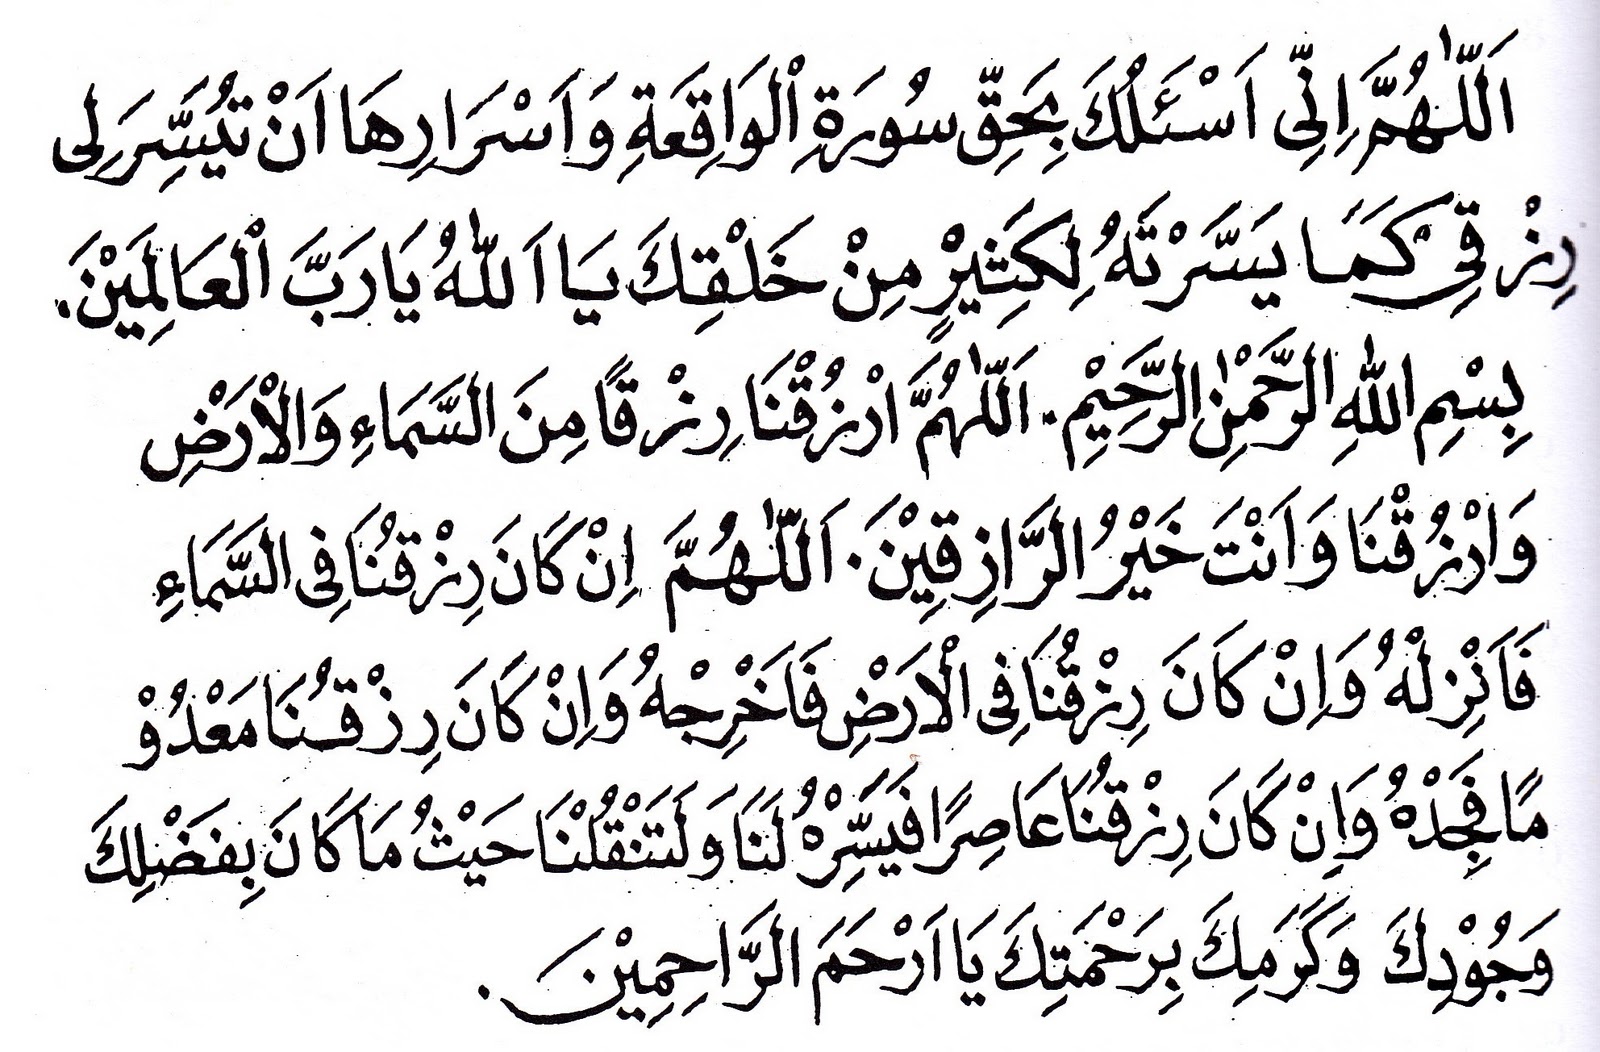 اَللّٰهُمَّ اِنِّى اَسْئَلُكَ بِحَقِّ سُورَةِ اْلوَاقِعَةِ وَاَسْرَارِهَا اَنْ تُيَسِّرَلِى
رِزْقِى كَمَا يَسَّرْتَهُ لِكَثِيْرٍ مِنْ خَلْقِكَ يَا اَللهُ يَارَبَّ اْلعَالَمِيْنَ.
بِسْمِ اللهِ الرَّحْمٰنِ الرَّحِيْمِ. اَللّٰهُمَّ ارْزُقْنَا رِزْقًا مِنَ السَّمَاءِ وَالْاَرْضِ
وَارْزُقْنَا وَاَنْتَ خَيْرُ الرَّازِقِيْنَ. اَللّٰهُمَّ اِنْ كَانَ رِزْقُنَا فِى السَّمَاءِ
فَاَنْزِلْهُ وَاِنْ كَانَ رِزْقُنَا فِى الْاَرْضِ فَاَخْرِجْهُ وَاِنْ كَانَ رِزْقُنَا مَعْدُوْ
مًا فَجِدْهُ وَاِنْ كَانَ رِزْقُنَا عَاصِرًا فَيَسِّرْهُ لَنَا وَلَتَنْقُلْنَا حَيْثُ مَا كَانَ بِفَضْلِكَ
وَجُوْدِكَ وَكَرَمِكَ بِرَحْمَتِكَ يَا اَرْحَمَ الرَّاحِمِيْنَ.